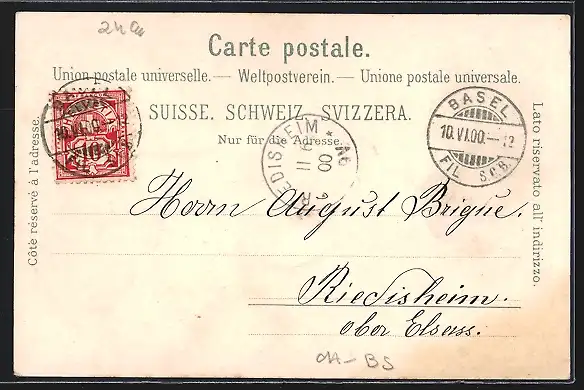 2h au
Carte postale.
Union postale universelle. — Weltpostverein. — Unione postale universale.
SUISSE. SCHWEIZ. SVIZZERA.
Nur für die Adresse.
Côté réservé à l'adresse.
Lato riservato all' indirizzo.
10
BASEL
10.VI.00.—12
FIL S.C.B.
RIEDISHEIM
11 6 00
Herrn August Brigue.
Riedisheim.
ober Elsass.
CH-BS